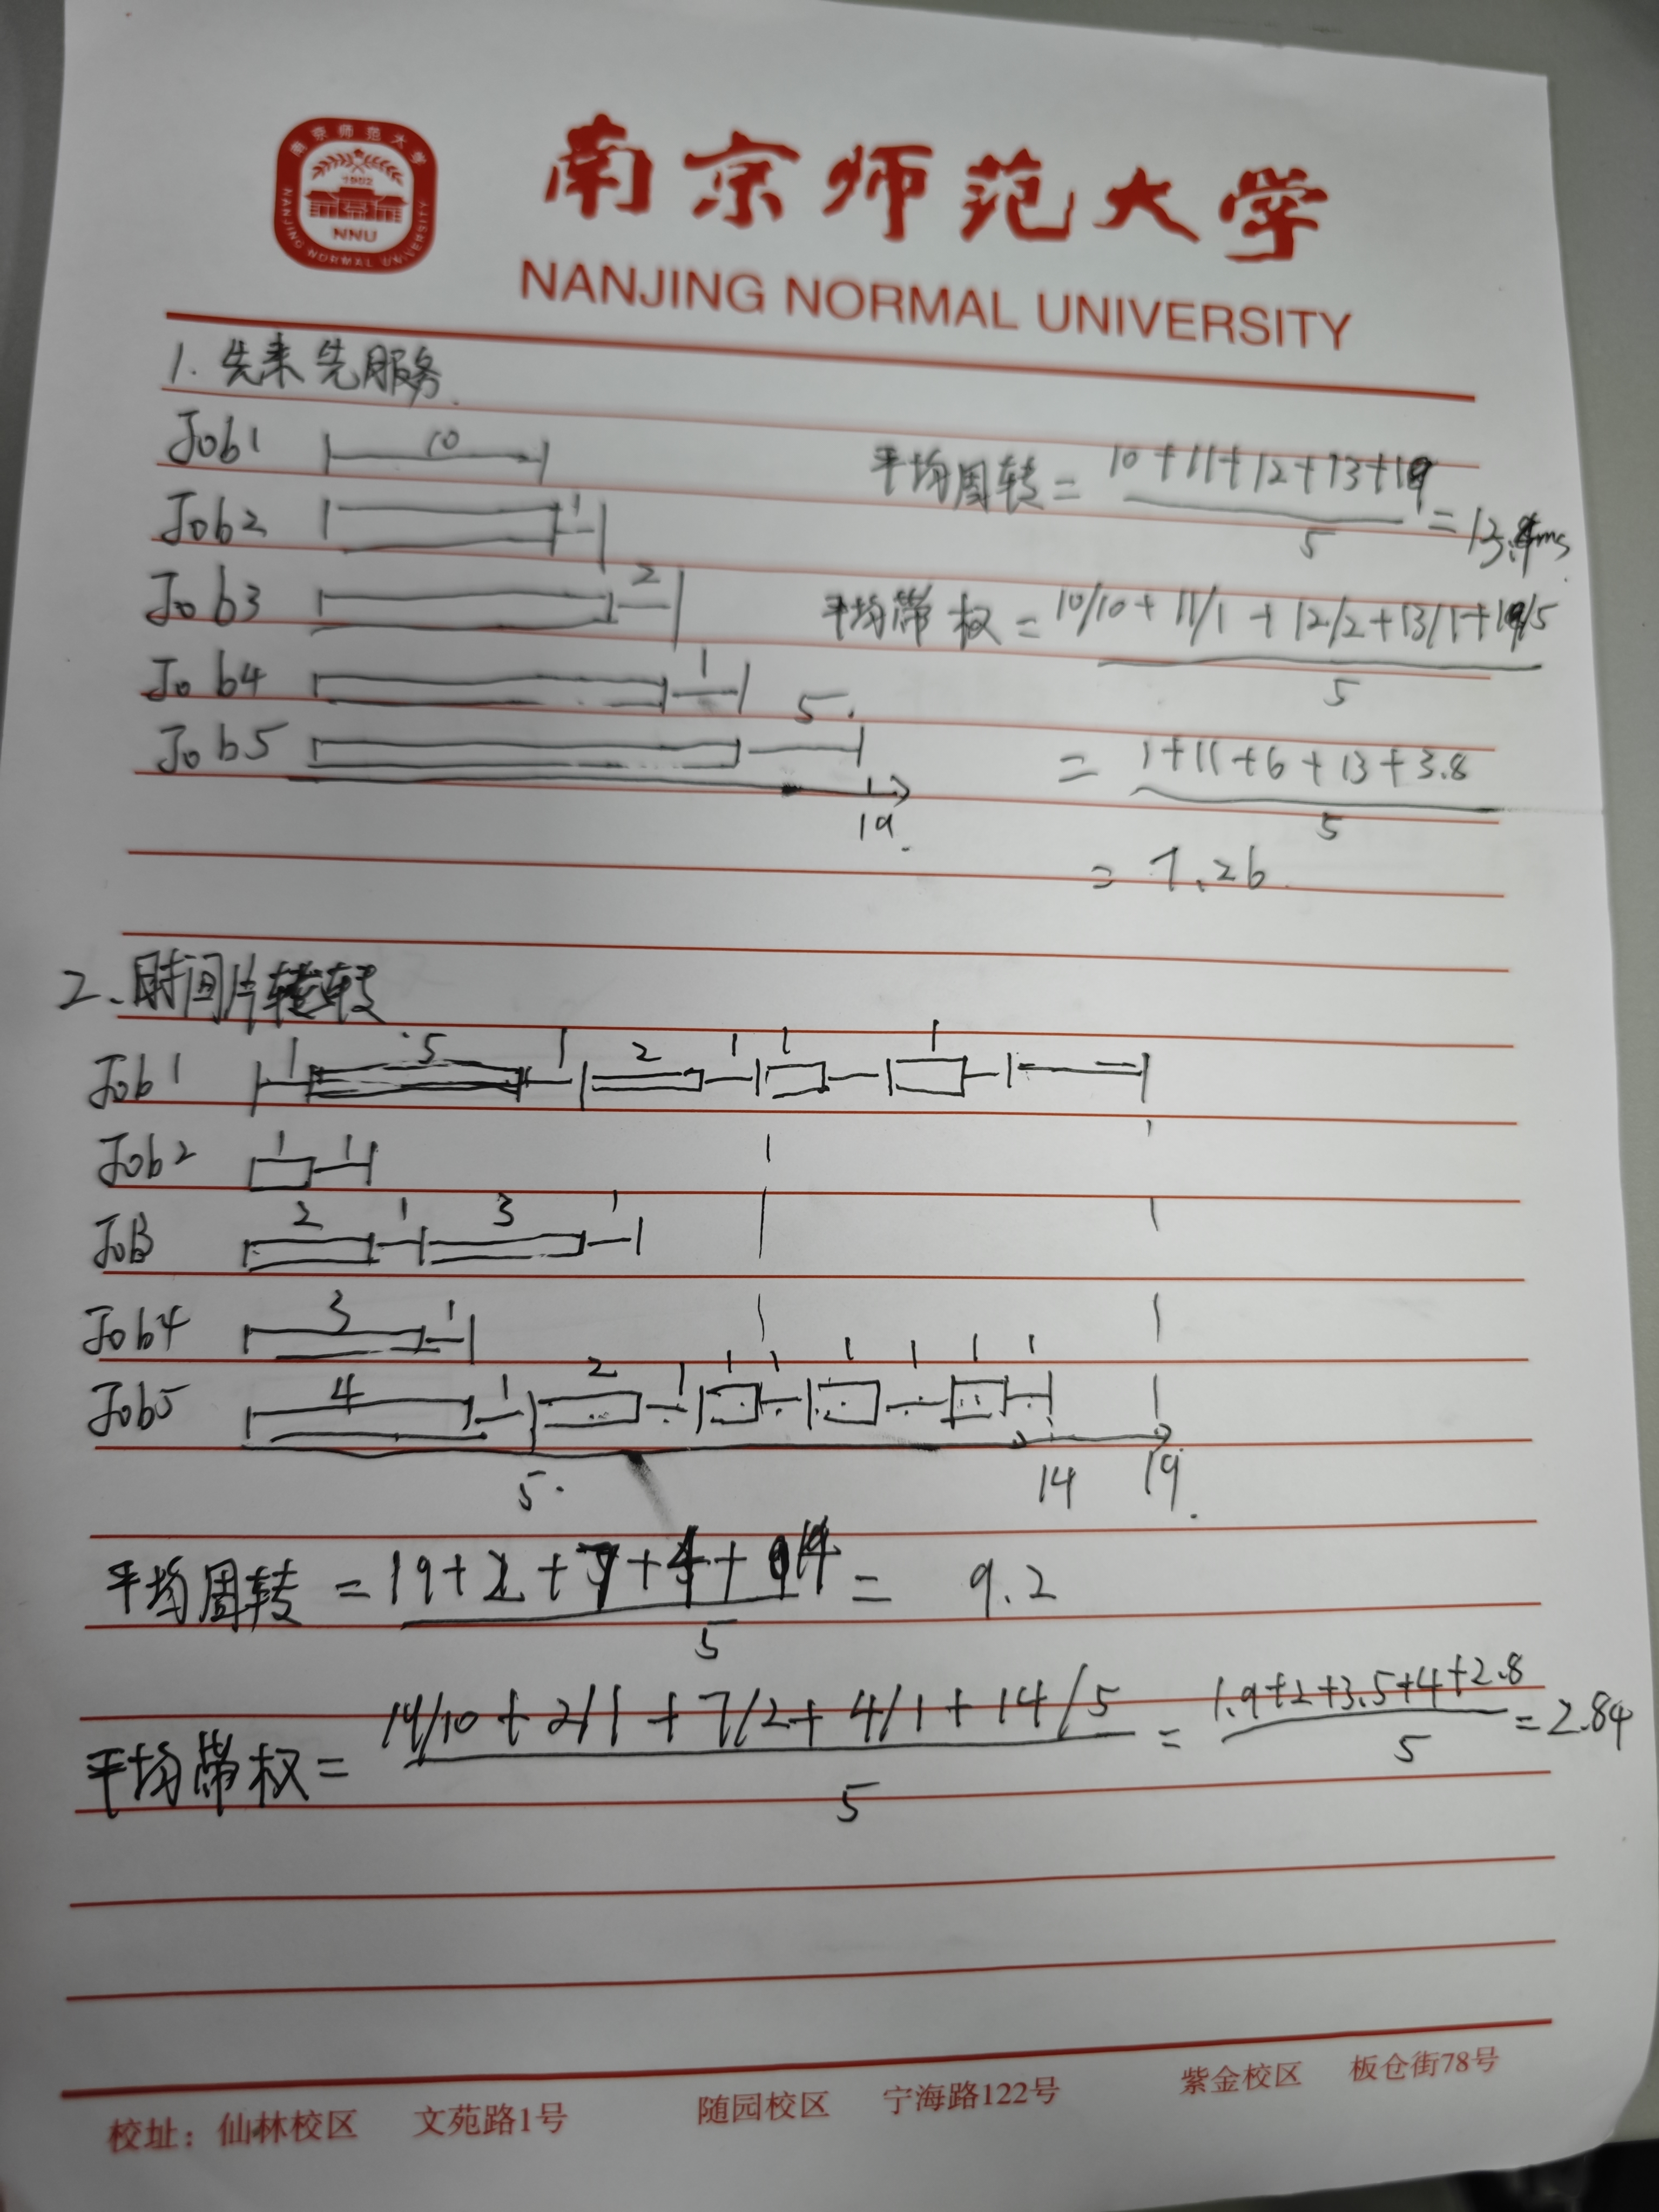 南京师范大学
1902
NNU
NANJING NORMAL UNIVERSITY
南京师范大学
NANJING NORMAL UNIVERSITY
1. 先来先服务.
Job1 10
平均周转 = 10+11+12+13+19
5
= 13. ms
Job2 1
Job3 2
平均带权 = 10/10 + 11/1 + 12/2 + 13/1 + 19/5
5
Job4 1
Job5 5.
19.
= 1+11+6+13+3.8
5
= 7.26.
2、时间片轮转
Job1 1 5 1 2 1 1 1
Job2 1 1
JoB 2 1 3 1
Job4 3 1
Job5 4 1 2 1 1 1 1 1 1 1
5. 14 19.
平均周转 = 19+2+7+4+14
5
= 9.2
平均带权 = 19/10 + 2/1 + 7/2 + 4/1 + 14/5
5
= 1.9+2+3.5+4+2.8
5
= 2.84
校址：仙林校区 文苑路1号 随园校区 宁海路122号 紫金校区 板仓街78号